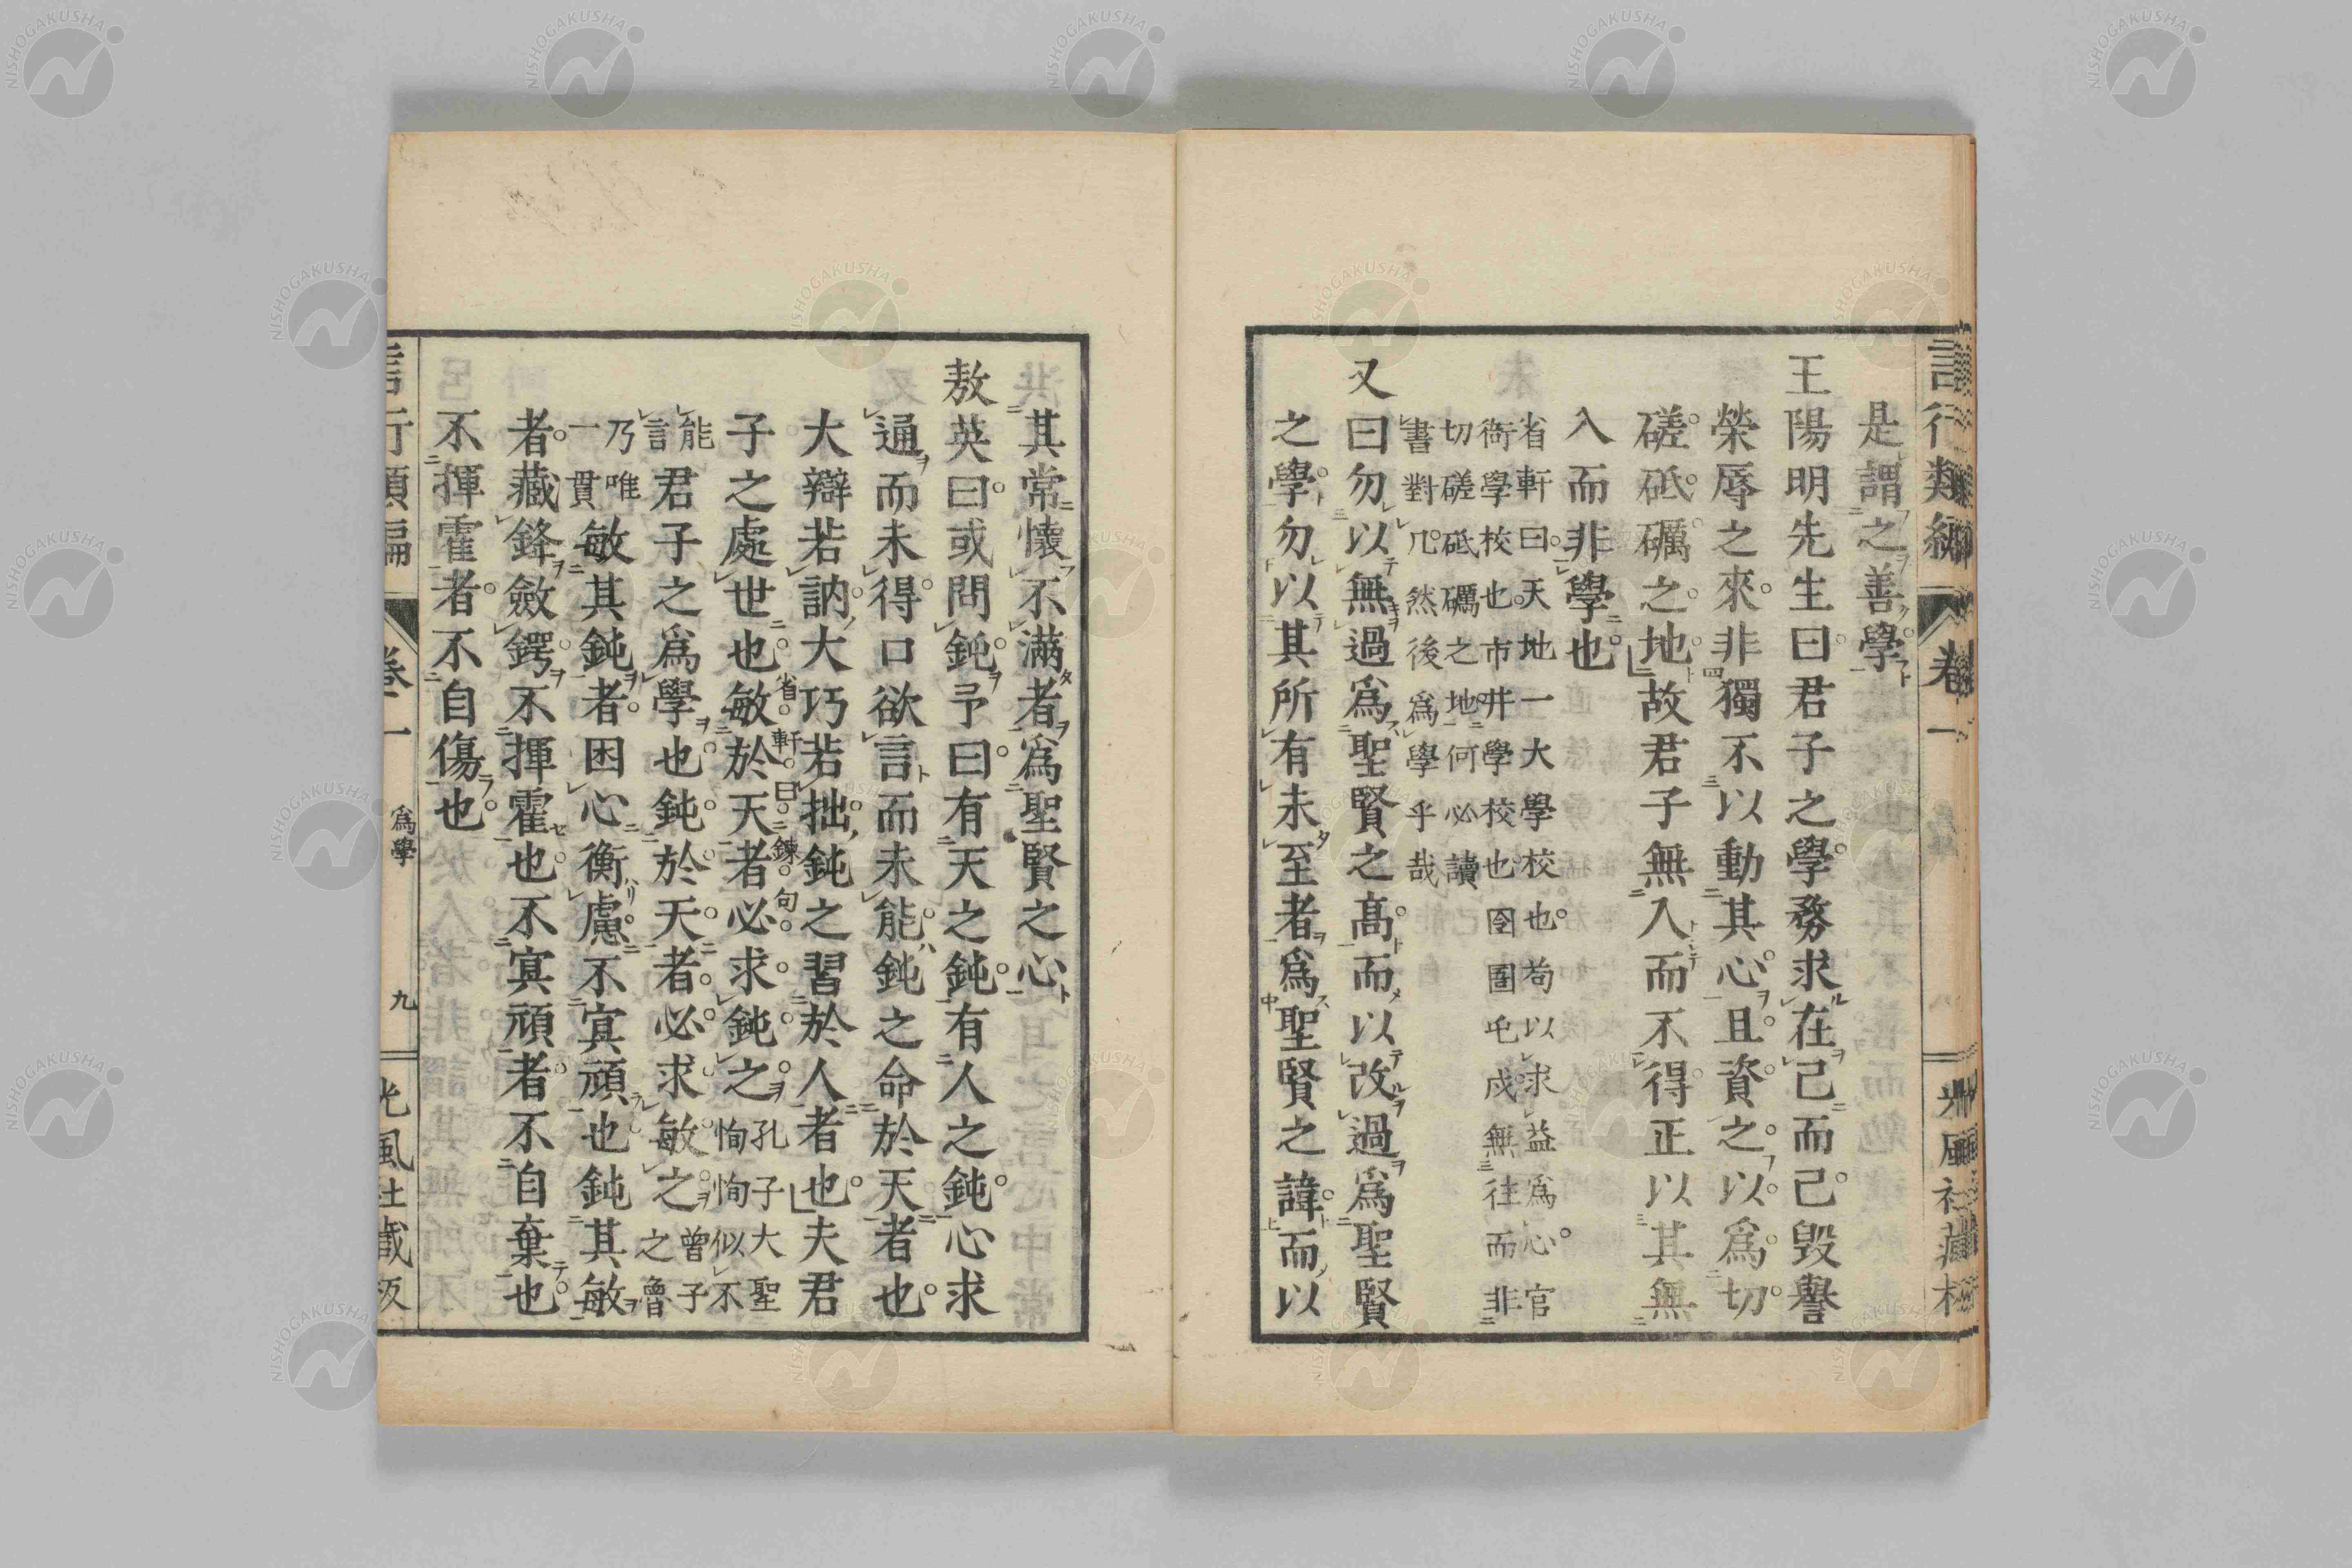 言行類編 卷一
是謂之善學
王陽明先生曰君子之學務求在己而已毀譽
榮辱之來非獨不以動其心且資之以爲切
磋砥礪之地故君子無入而不得正以其無
入而非學也
省軒曰天地一大學校也苟以求益爲心官
衙學校也市井學校也囹圄屯戍無往而非
切磋砥礪之地何必讀
書對几然後爲學乎哉
又曰勿以無過爲聖賢之高而以改過爲聖賢
之學勿以其所有未至者爲聖賢之諱而以
其常懷不滿者爲聖賢之心
敖英曰或問鈍予曰有天之鈍有人之鈍心求
通而未得口欲言而未能鈍之命於天者也
大辯若訥大巧若拙鈍之習於人者也夫君
省軒曰鍊句
子之處世也敏於天者必求鈍之
孔子大聖
恂恂似不
能
言
君子之爲學也鈍於天者必求敏之
曾子
之魯
乃唯
一貫
敏其鈍者困心衡慮不寘頑也鈍其敏
者藏鋒斂鍔不揮霍也不寘頑者不自棄也
不揮霍者不自傷也
言行類編 卷一 爲學 九 光風社藏板
NISHOGAKUSHA